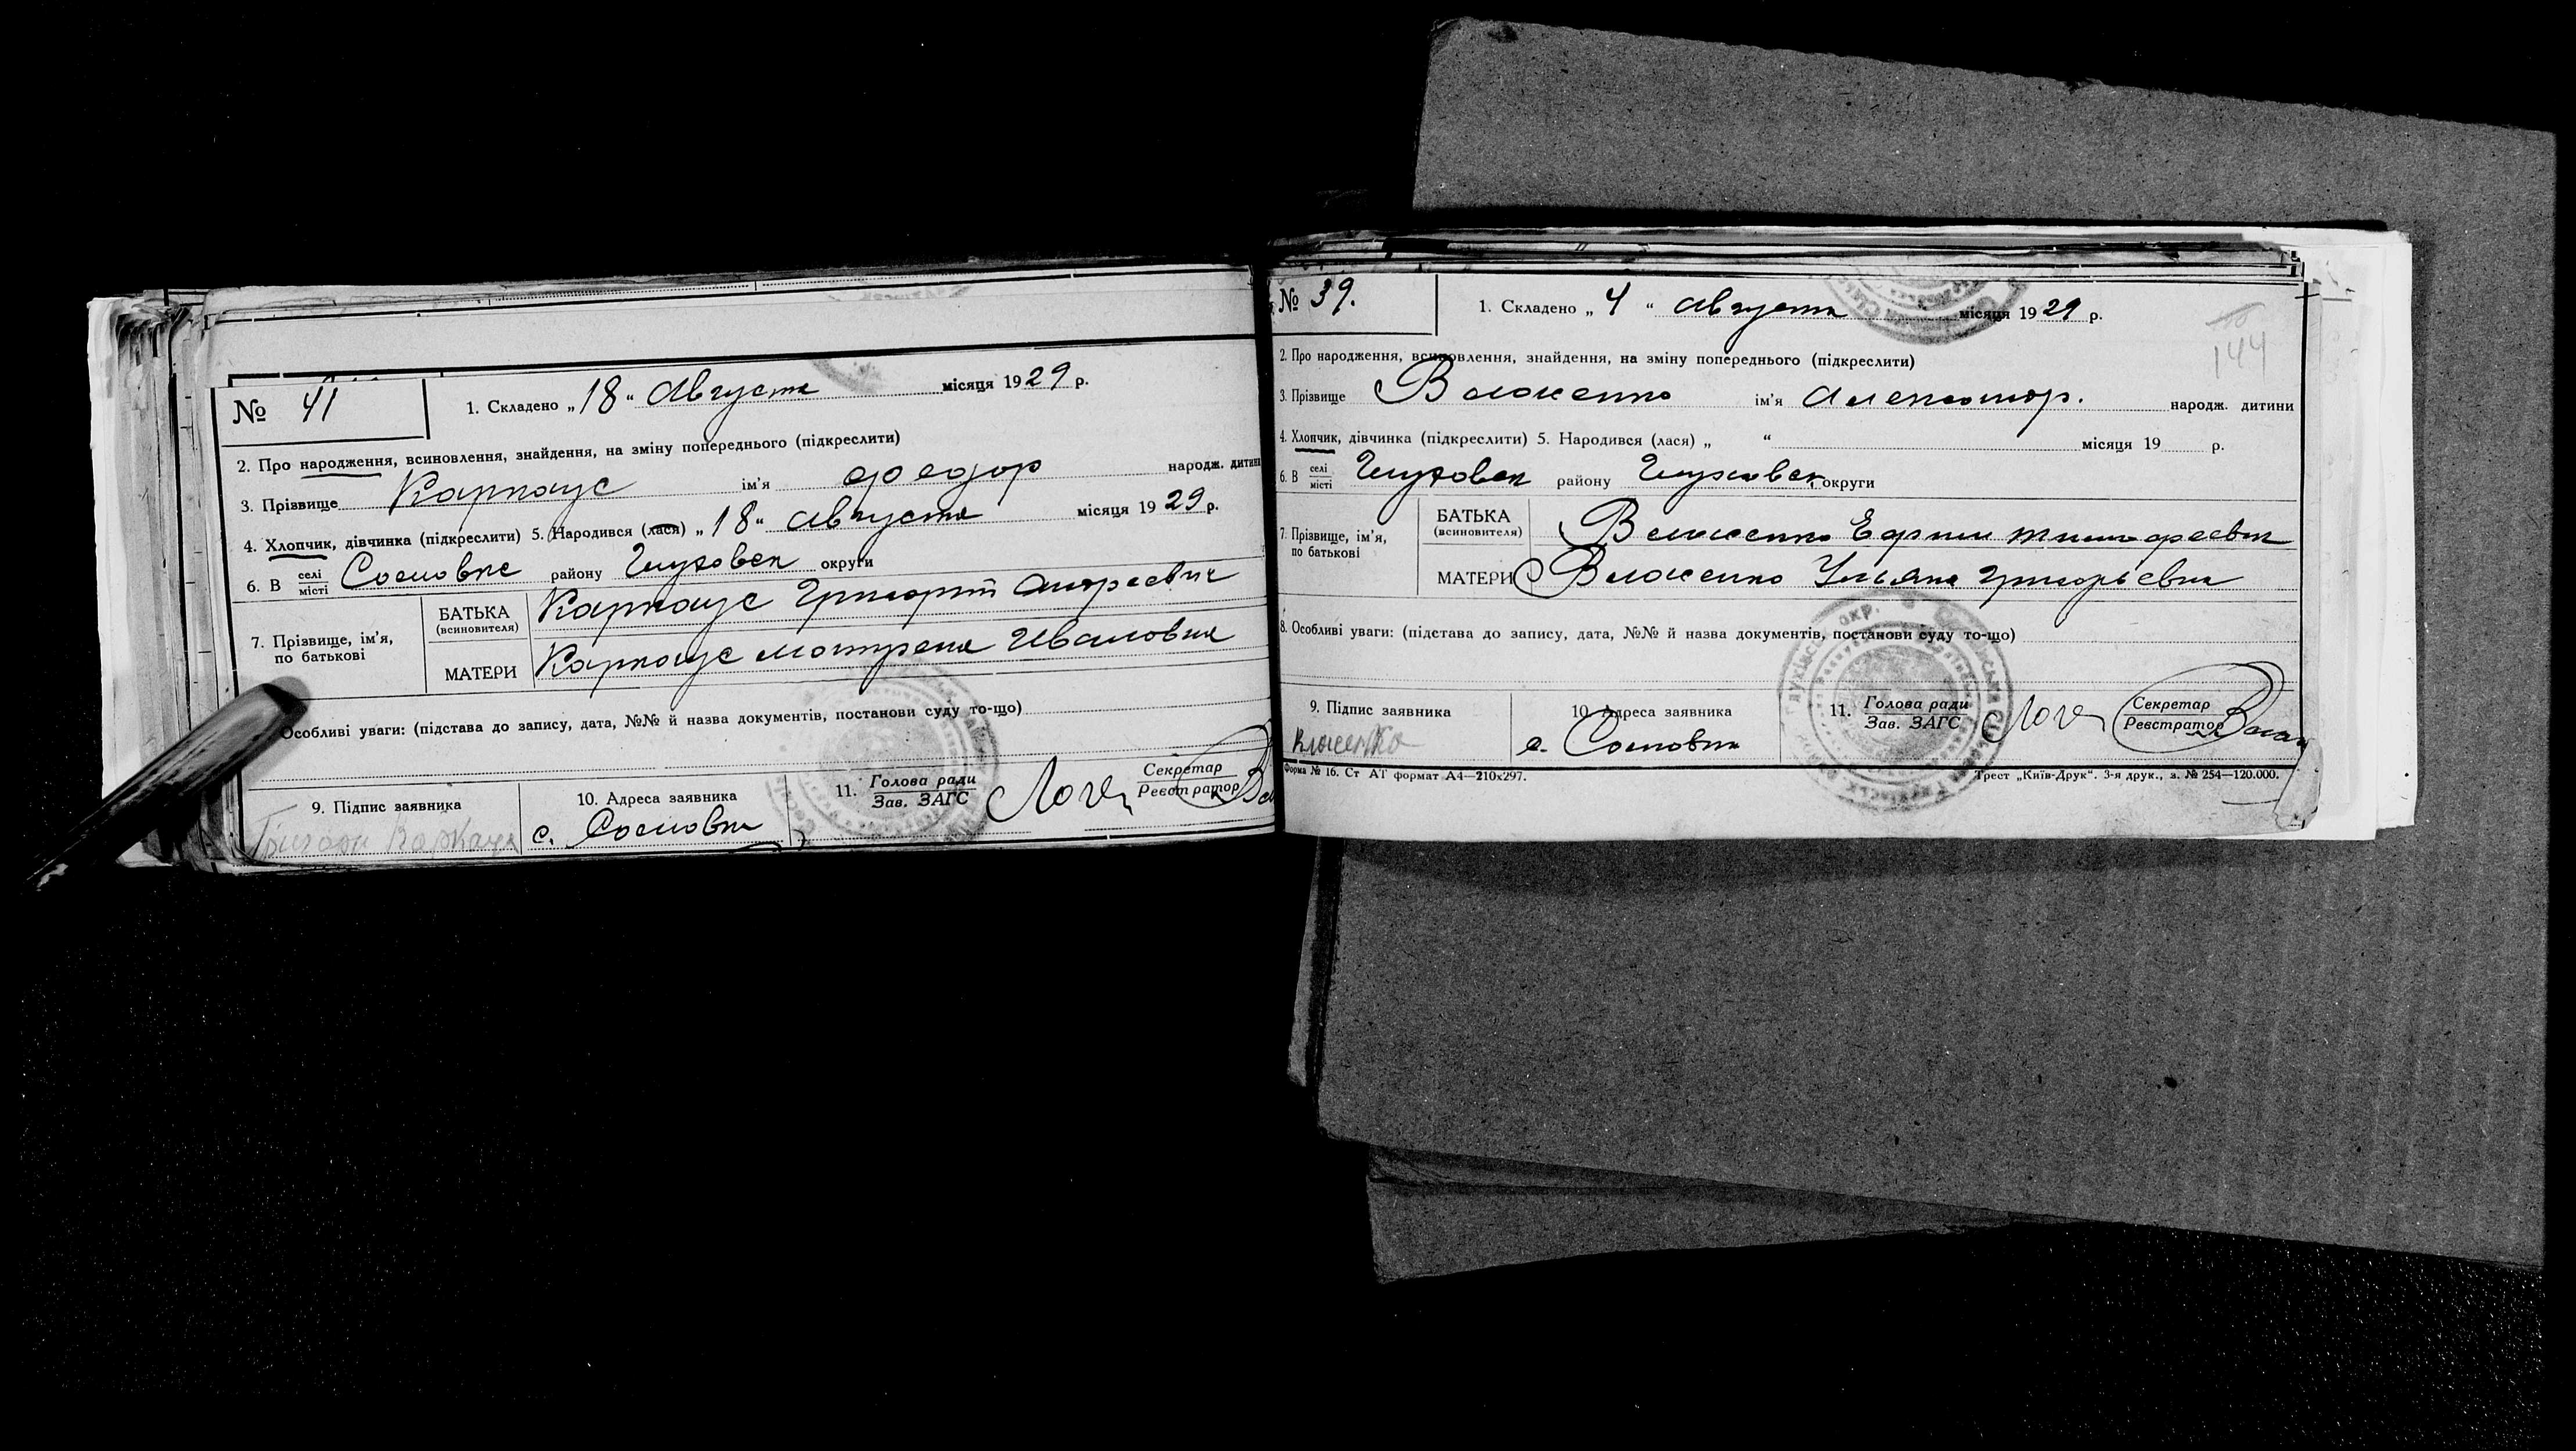 № 41
1. Складено „ 18 “ Августа місяця 1929 р.
2. Про народження, всиновлення, знайдення, на зміну попереднього (підкреслити)
3. Прізвище Карпаус ім'я федор народж. дитини
4. Хлопчик, дівчинка (підкреслити) 5. Народився (лася) „ 18 “ Августа місяця 1929 р.
6. В селі місті району Глуховск округи
7. Прізвище, ім'я, по батькові
БАТЬКА (всиновителя) Карпаус Григорий Андреевич
МАТЕРИ Карпаус Мотрена Ивановна
Особливі уваги: (підстава до запису, дата, №№ й назва документів, постанови суду то-що)
9. Підпис заявника
10. Адреса заявника
с. Сосновка
11. Голова ради
Зав. ЗАГС
Секретар
Реєстратор
№ 39.
1. Складено „ 4 “ Августа місяця 1929 р.
144
2. Про народження, всиновлення, знайдення, на зміну попереднього (підкреслити)
3. Прізвище Власенко ім'я Александр. народж. дитини
4. Хлопчик, дівчинка (підкреслити) 5. Народився (лася) „ “ місяця 19 р.
6. В селі місті Глуховск району Глуховск округи
7. Прізвище, ім'я, по батькові
БАТЬКА (всиновителя) Власенко Ефрим Тимофеевич
МАТЕРИ Власенко Ульяна Григорьевна
8. Особливі уваги: (підстава до запису, дата, №№ й назва документів, постанови суду то-що)
9. Підпис заявника
Власенко
10. Адреса заявника
с. Сосновка
11. Голова ради
Зав. ЗАГС
Секретар
Реєстратор
Форма № 16. Ст АТ формат А4—210x297.
Трест „Київ-Друк“. 3-я друк., з. № 254—120.000.